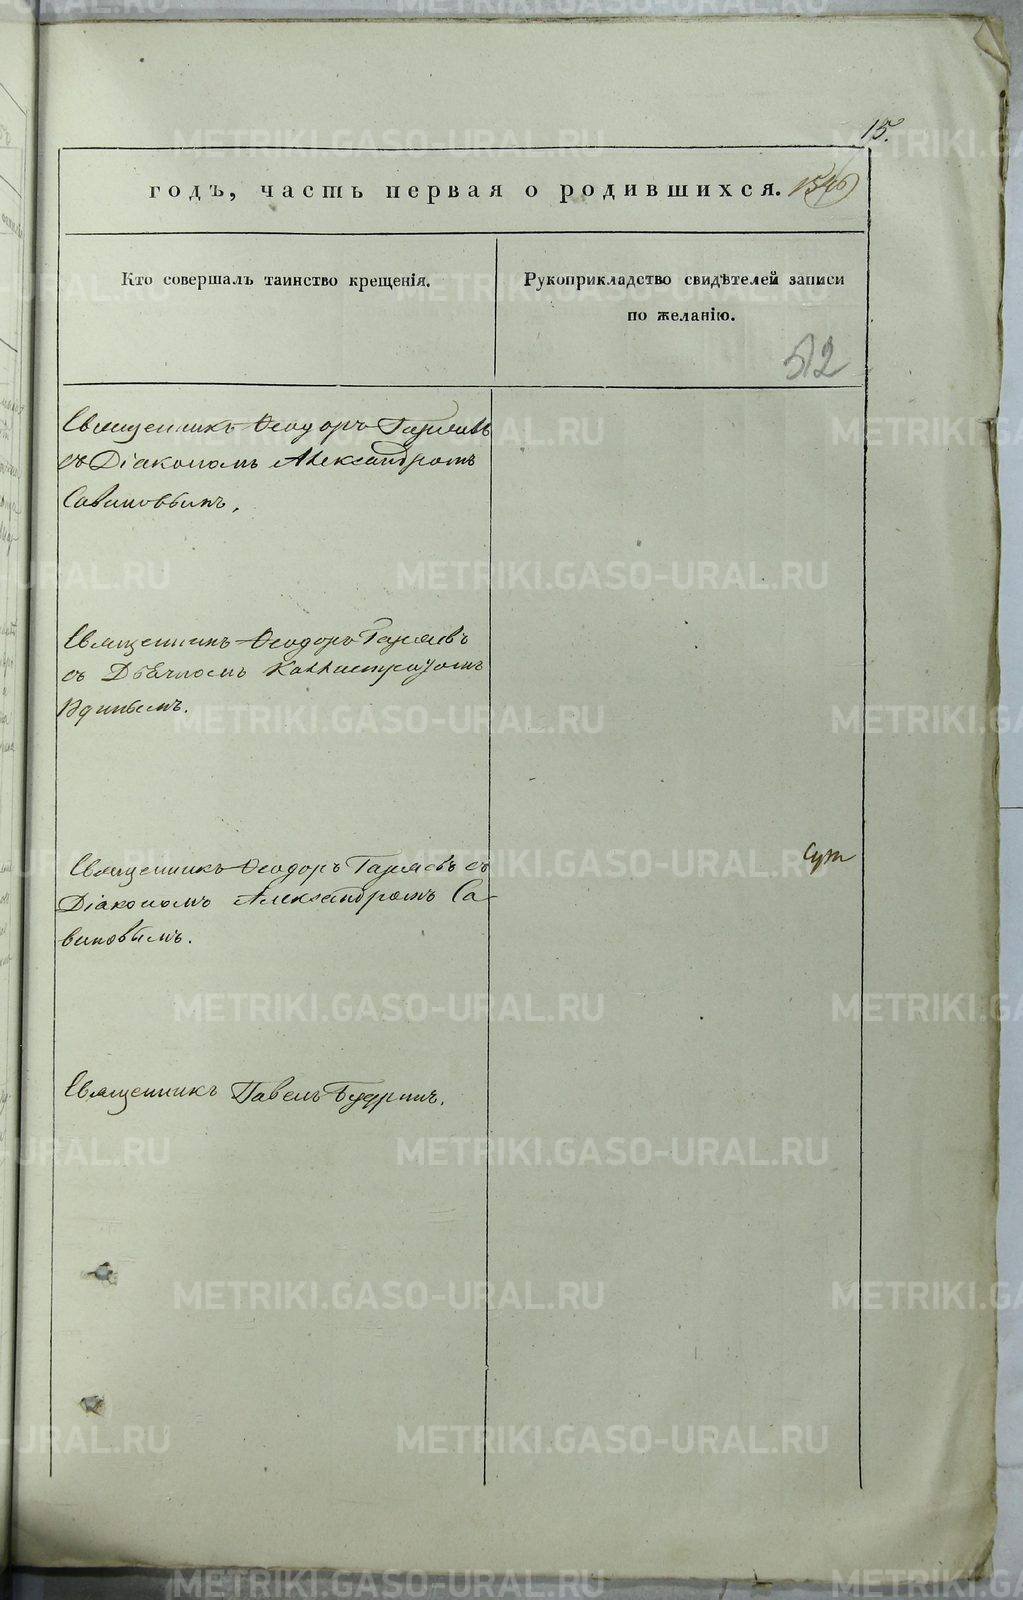 15.
годъ, часть первая о родившихся.
Кто совершалъ таинство крещенія.
Рукоприкладство свидѣтелей записи
по желанію.
512
Священникъ Ѳеодоръ Гаряевъ
съ Діакономъ Александромъ
Савиновымъ.
Священникъ Ѳеодоръ Гаряевъ
съ Дьячкомъ Каллистратомъ
Священникъ Ѳеодоръ Гаряевъ съ
Діакономъ Александромъ Са-
виновымъ.
Священникъ Павелъ Будринъ.
METRIKI.GASO-URAL.RU